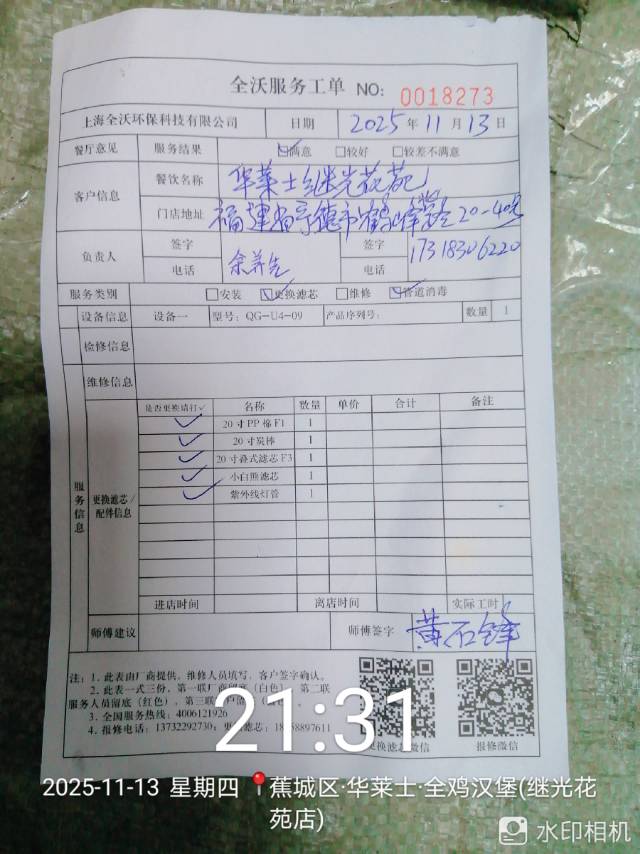 全沃服务工单 NO: 0018273
上海全沃环保科技有限公司 日期 2025年11月13日
餐厅意见 服务结果 ☑满意 □较好 □较差不满意
客户信息 餐饮名称 华莱士继光花苑
门店地址 福建省宁德市 20-40号
负责人 签字 签字
电话 电话 17318306220
服务类别 □安装 ☑更换滤芯 □维修 ☑管道消毒
设备信息 设备一 型号: QG-U4-09 产品序列号: 数量 1
检修信息
维修信息
服务信息 更换滤芯/配件信息
是否更换请打✓ 名称 数量 单价 合计 备注
✓ 20寸PP棉F1 1
✓ 20寸炭棒 1
✓ 20寸叠式滤芯F3 1
✓ 小白熊滤芯 1
✓ 紫外线灯管 1
进店时间 离店时间 实际工时
师傅建议 师傅签字 黄石锋
注: 1. 此表由厂商提供, 维修人员填写, 客户签字确认。
2. 此表一式三份, 第一联厂商留底(白色), 第二联
服务人员留底(红色), 第三联
3. 全国服务热线: 4006121926
4. 报修电话: 13732292730;
更换滤芯微信 报修微信
21:31
2025-11-13 星期四 蕉城区·华莱士·全鸡汉堡(继光花
苑店)
水印相机